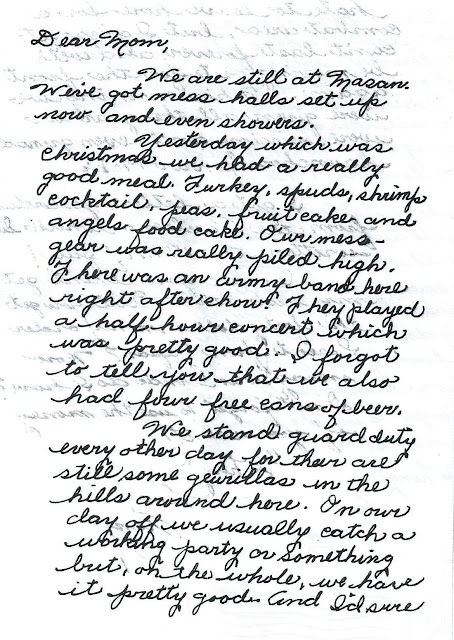 Dear Mom,
We are still at Masan.
We've got mess halls set up
now and even showers.
Yesterday which was
Christmas we had a really
good meal. Turkey, spuds, shrimp
cocktail, peas, fruit cake and
angels food cake. Our mess-
gear was really piled high.
There was an army band here
right after chow. They played
a half hour concert which
was pretty good. I forgot
to tell you that we also
had four free cans of beer.
We stand guard duty
every other day for their are
still some gewrillas in the
hills around here. On our
day off we usually catch a
working party or something
but, on the whole, we have
it pretty good. And I'd sure